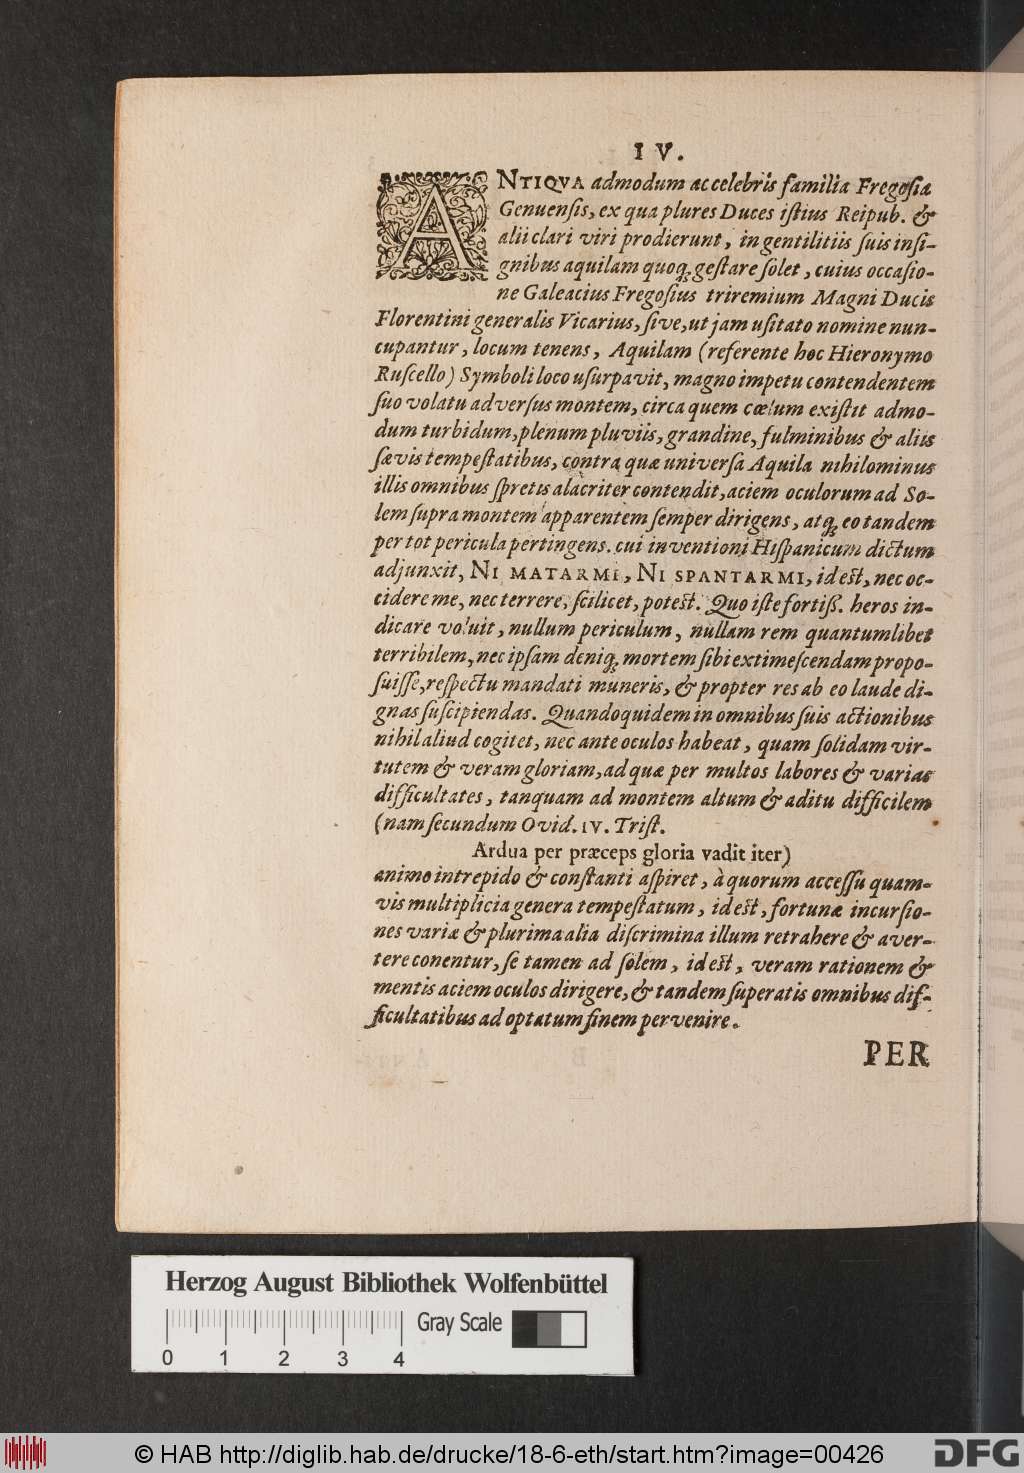 IV.
ANTIQVA admodum ac celebris familia Fregosia
Genuensis, ex qua plures Duces istius Reipub. &
alii clari viri prodierunt, in gentilitiis suis insi-
gnibus aquilam quoq; gestare solet, cuius occasio-
ne Galeacius Fregosius triremium Magni Ducis
Florentini generalis Vicarius, sive, ut jam usitato nomine nun-
cupantur, locum tenens, Aquilam (referente hoc Hieronymo
Ruscello) Symboli loco usurpavit, magno impetu contendentem
suo volatu adversus montem, circa quem cœlum existit admo-
dum turbidum, plenum pluviis, grandine, fulminibus & aliis
sævis tempestatibus, contra quæ universa Aquila nihilominus
illis omnibus spretis alacriter contendit, aciem oculorum ad So-
lem supra montem apparentem semper dirigens, atq; eo tandem
per tot pericula pertingens. cui inventioni Hispanicum dictum
adjunxit, NI MATARMI, NI SPANTARMI, id est, nec oc-
cidere me, nec terrere, scilicet, potest. Quo iste fortiß. heros in-
dicare voluit, nullum periculum, nullam rem quantumlibet
terribilem, nec ipsam deniq; mortem sibi extimescendam propo-
suisse, respectu mandati muneris, & propter res ab eo laude di-
gnas suscipiendas. Quandoquidem in omnibus suis actionibus
nihil aliud cogitet, nec ante oculos habeat, quam solidam vir-
tutem & veram gloriam, ad quæ per multos labores & varias
difficultates, tanquam ad montem altum & aditu difficilem
(nam secundum Ovid. IV. Trist.
Ardua per præceps gloria vadit iter)
animo intrepido & constanti aspiret, à quorum accessu quam-
vis multiplicia genera tempestatum, id est, fortunæ incursio-
nes variæ & plurima alia discrimina illum retrahere & aver-
tere conentur, se tamen ad solem, id est, veram rationem &
mentis aciem oculos dirigere, & tandem superatis omnibus dif-
ficultatibus ad optatum finem pervenire.
PER
Herzog August Bibliothek Wolfenbüttel
Gray Scale
0 1 2 3 4
© HAB http://diglib.hab.de/drucke/18-6-eth/start.htm?image=00426
DFG